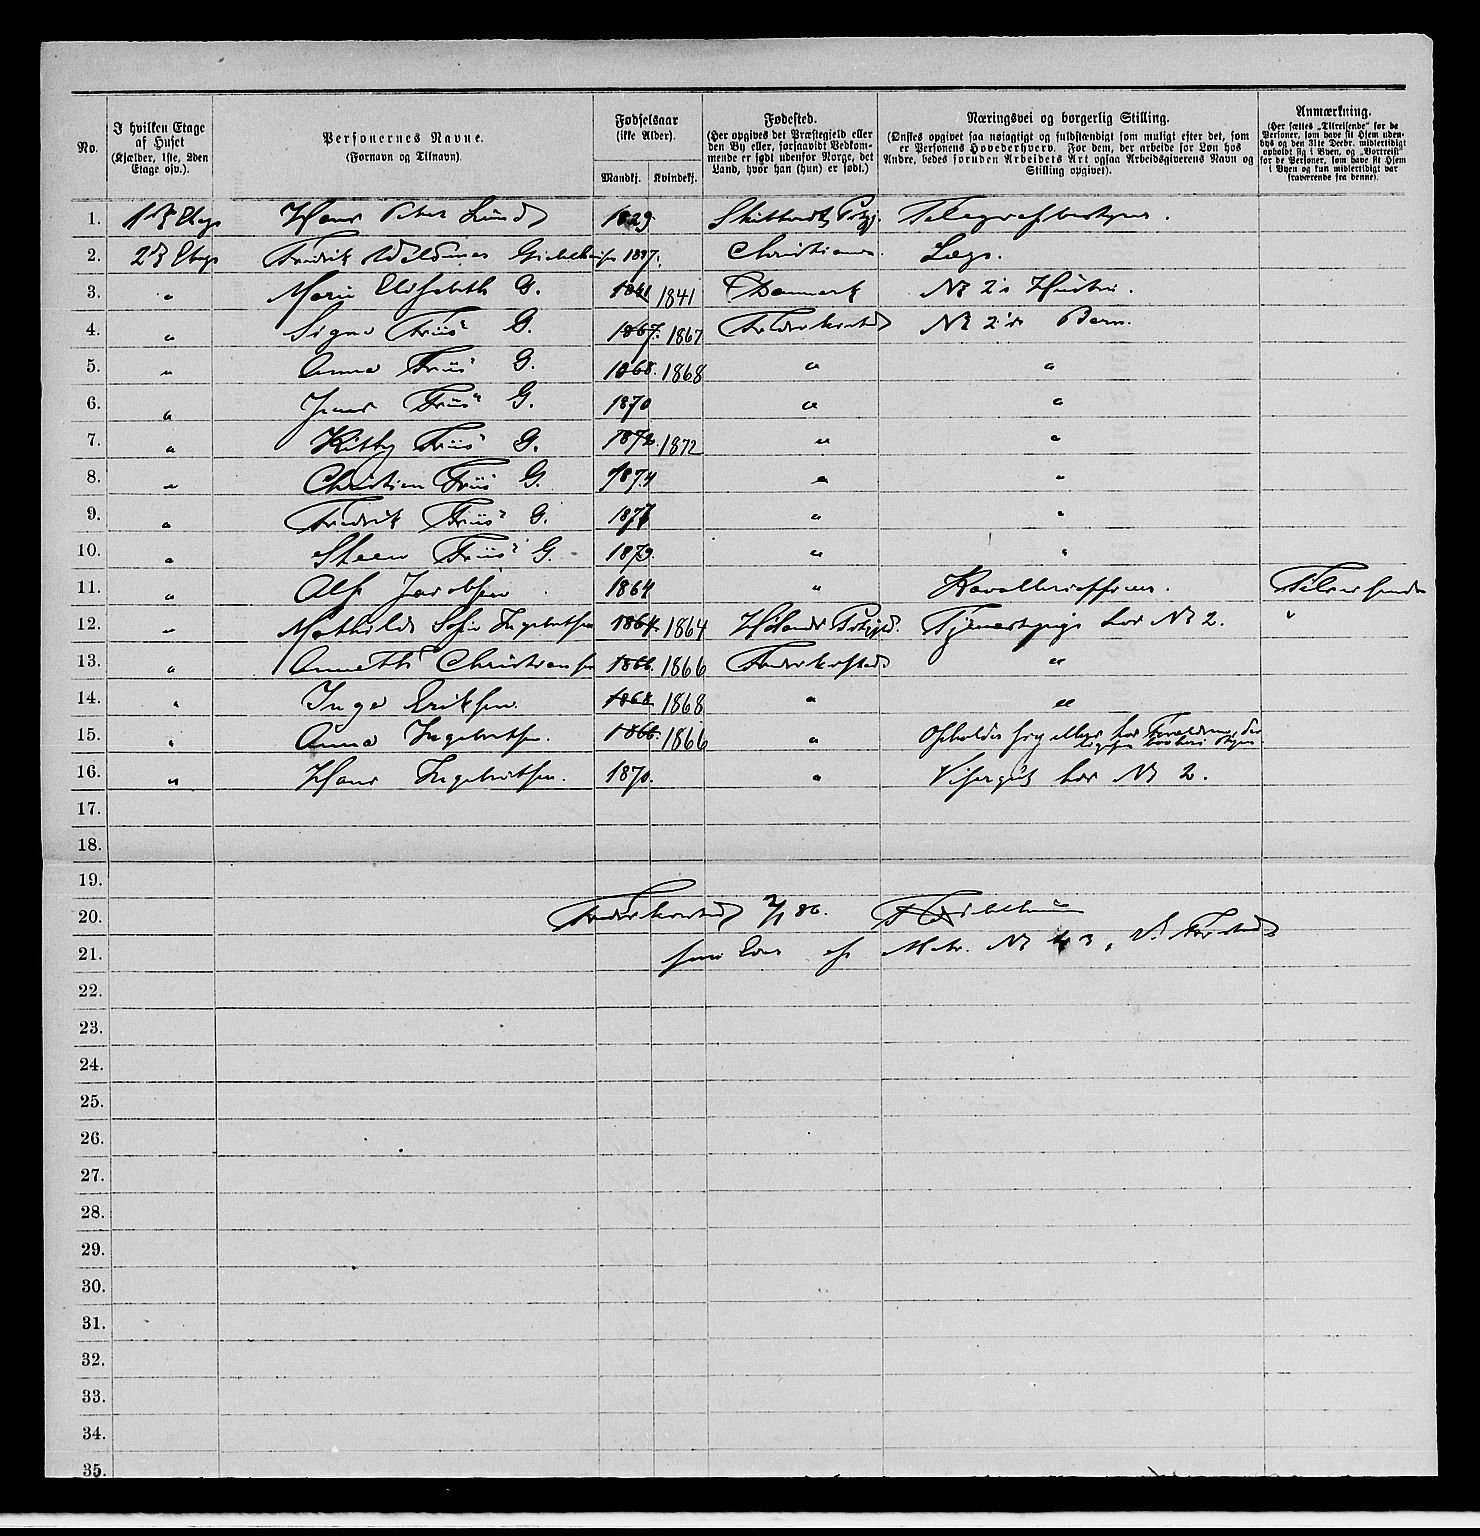 No. | I hvilken Etage af Huset (Kjælder, 1ste, 2den Etage osv.). | Personernes Navne. (Fornavn og Tilnavn). | Fødselsaar (ikke Alder). Mandkj. | Kvindekj. | Fødested. (Her opgives det Præstegjeld eller den By eller, forsaavidt Vedkommende er født udenfor Norge, det Land, hvor han (hun) er født.) | Næringsvei og borgerlig Stilling. (Ønskes opgivet saa nøiagtigt og fuldstændigt som muligt efter det, som er Personens Hovederhverv. For dem, der arbeide for Løn hos Andre, bedes foruden Arbeidets Art ogsaa Arbeidsgiverens Navn og Stilling opgivet). | Anmærkning. (Her sættes „Tilreisende“ for de Personer, som have sit Hjem udenbys og den 31te Decbr. midlertidigt opholdt sig i Byen, og „Bortreist“ for de Personer, som have sit Hjem i Byen og kun midlertidigt var fraværende fra denne).
1. | 1st Etage | Hans Peter Lund | 1829 | | | Telegrafbestyrer.
2. | 2d Etage | Fredrik Waldemar | 1837. | | Christiania. | Læge.
3. | " | Marie Elisabeth G. | 1841 | 1841 | Danmark | No 2's Hustru.
4. | " | Signe Friis G. | 1867. | 1867 | Frederikstad | No 2's Børn.
5. | " | Anna Friis G. | 1868. | 1868 | " | "
6. | " | Jens Friis G. | 1870 | | " | "
7. | " | Kitty Friis G. | 1872. | 1872 | " | "
8. | " | Christian Friis G. | 1874 | | " | "
9. | " | Fredrik Friis G. | 1877 | | " | "
10. | " | Steen Friis G. | 1879. | | " | "
11. | " | Alf Jacobsen | 1864 | | " | | Tilreisende
12. | " | Mathilde Sofie Ingebretsen | 1864. | 1864 | Hølands Prstgjd. | Tjenestepige hos No 2. | "
13. | " | Annette Christiansen | 1866. | 1866 | Frederikstad | "
14. | " | Inga Eriksen | 1868 | 1868 | " | "
15. | " | Anna Ingebretsen. | 1866. | 1866 | " | Opholder sig ellers hos Forældrene, der
ligeledes
16. | " | Hans Ingebretsen. | 1870. | | " | Visergut hos No 2.
17.
18.
19.
20. Frederikstad 2/1 86.
21. som Eier af Matr. No
22.
23.
24.
25.
26.
27.
28.
29.
30.
31.
32.
33.
34.
35.